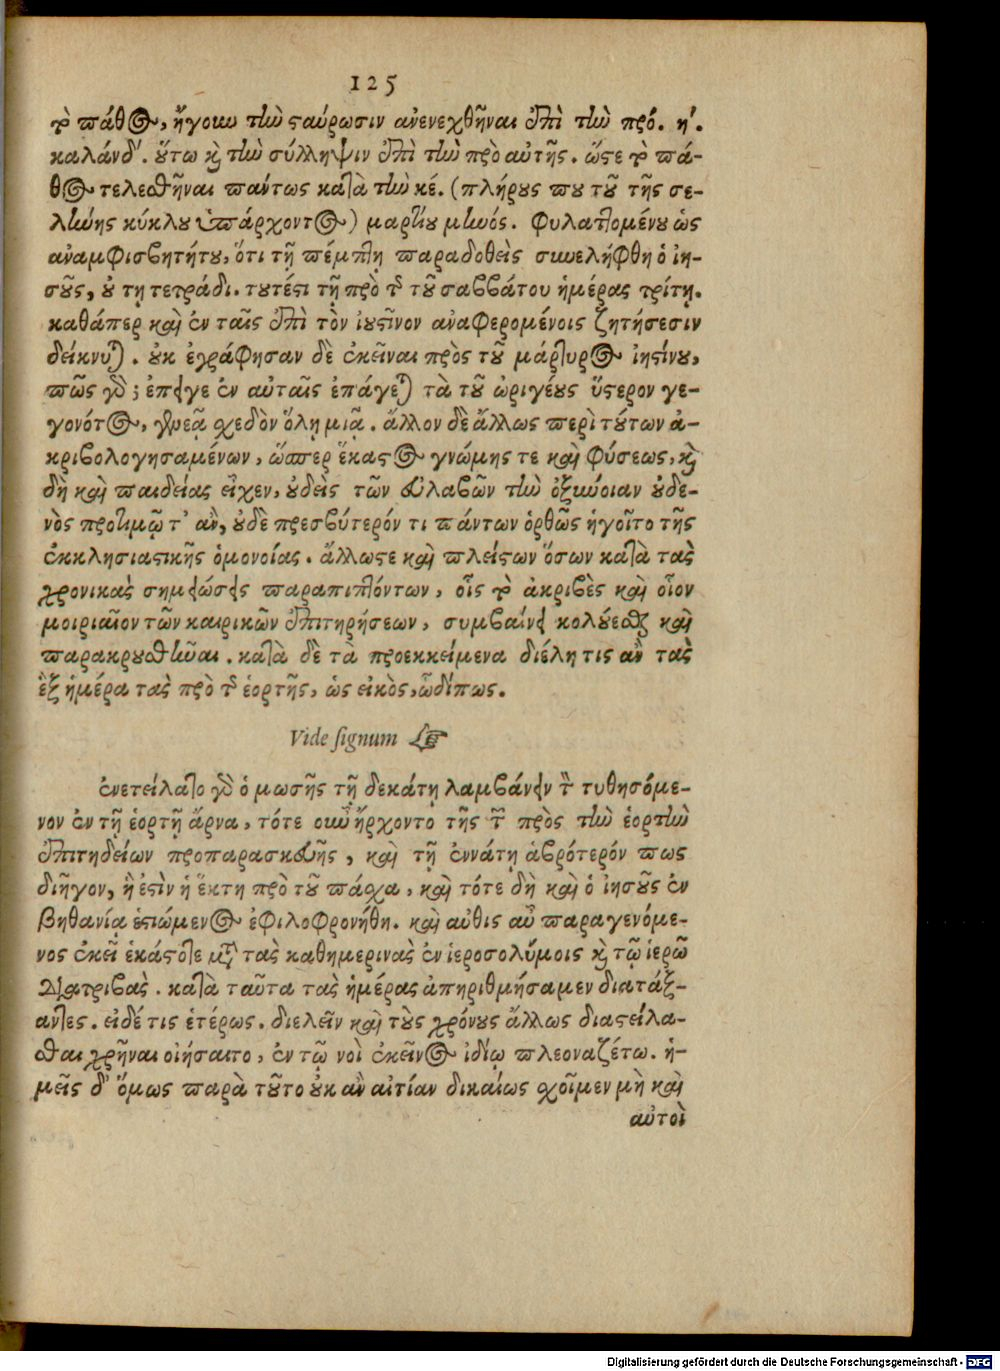 125
τὸ πάθος, ἤγουν τὴν ςαύρωσιν ἀνενεχθῆναι ἐπὶ τὴν πρό. η΄.
καλάνδ΄. ὕτω καὶ τὴν σύλληψιν ἐπὶ τὴν πρὸ αὐτῆς. ὥςε τὸ πά-
θος τελεσθῆναι πάντως κατὰ τὴν κέ. (πλήρους που τοῦ τῆς σε-
λήνης κύκλου ὑπάρχοντος) μαρτίου μηνός. Φυλαττομένου ὡς
ἀναμφισβητήτου, ὅτι τῇ πέμπτῃ παραδοθεὶς συνελήφθη ὁ ἰη-
σοῦς, οὐ τῇ τετράδι. τουτέςι τῇ πρὸ τοῦ σαββάτου ἡμέρας τρίτῃ.
καθάπερ καὶ ἐν ταῖς ἐπὶ τὸν ἰουςῖνον ἀναφερομένοις ζητήσεσιν
δείκνυται. οὐκ ἐγράφησαν δὲ ἐκεῖναι πρὸς τοῦ μάρτυρος ἰηςίνου,
πῶς γὰρ; ἐπείγε ἐν αὐταῖς ἐπάγεται τὰ τοῦ ὠριγένους ὕςερον γε-
γονότος, γενεᾷ σχεδὸν ὅλῃ μιᾷ. ἄλλον δὲ ἄλλως περὶ τούτων ἀ-
κριβολογησαμένων, ὥσπερ ἕκαςος γνώμης τε καὶ φύσεως, καὶ
δὴ καὶ παιδείας εἶχεν, οὐδεὶς τῶν εὐλαβῶν τὴν ὀξύνοιαν οὐδε-
νὸς προτιμῷ τ' ἂν, οὐδὲ πρεσβύτερόν τι πάντων ὀρθῶς ἡγοῖτο τῆς
ἐκκλησιαςικῆς ὁμονοίας. ἄλλωςε καὶ πλείςων ὅσων κατὰ τὰς
χρονικὰς σημειώσεις παραπιπτόντων, οἷς τὸ ἀκριβὲς καὶ οἷον
μοιριαῖον τῶν καιρικῶν ἐπιτηρήσεων, συμβαίνει κολούεσθαι καὶ
παρακρουσθῆναι. κατὰ δὲ τὰ προεκκείμενα διέλῃ τις ἂν τὰς
ἓξ ἡμέρα τὰς πρὸ τῆς ἑορτῆς, ὡς εἰκὸς, ὧδίπως.
Vide signum ☞
ἐνετείλατο γὰρ ὁ μωσῆς τῇ δεκάτῃ λαμβάνειν τὸν τυθησόμε-
νον ἐν τῇ ἑορτῇ ἄρνα, τότε οὖν ἤρχοντο τῆς τῶν πρὸς τὴν ἑορτὴν
ἐπιτηδείων προπαρασκευῆς, καὶ τῇ ἐννάτῃ ἁβρότερόν πως
διῆγον, ἥ ἐςὶν ἡ ἕκτη πρὸ τοῦ πάσχα, καὶ τότε δὴ καὶ ὁ ἰησοῦς ἐν
βηθανίᾳ ἑςιώμενος ἐφιλοφρονήθη. καὶ αὖθις αὖ παραγενόμε-
νος ἐκεῖ ἑκάςοτε μετὰ τὰς καθημερινὰς ἐν ἱεροσολύμοις καὶ τῷ ἱερῷ
διατριβὰς. κατὰ ταῦτα τὰς ἡμέρας ἀπηριθμήσαμεν διατάξ-
αντες. εἰδέ τις ἑτέρως. διελεῖν καὶ τοὺς χρόνους ἄλλως διαςείλα-
σθαι χρῆναι οἰήσαιτο, ἐν τῷ νοῒ ἐκεῖνος ἰδίῳ πλεοναζέτω. ἡ-
μεῖς δ' ὅμως παρὰ τοῦτο οὐκ ἂν αἰτίαν δικαίως σχοῖμεν μὴ καὶ
αὐτοὶ
Digitalisierung gefördert durch die Deutsche Forschungsgemeinschaft - DFG